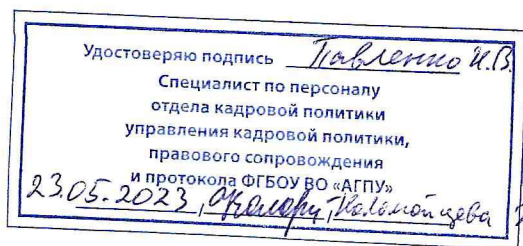 Удостоверяю подпись Павленко И.В.
Специалист по персоналу
отдела кадровой политики
управления кадровой политики,
правового сопровождения
и протокола ФГБОУ ВО «АГПУ»
23.05.2023,